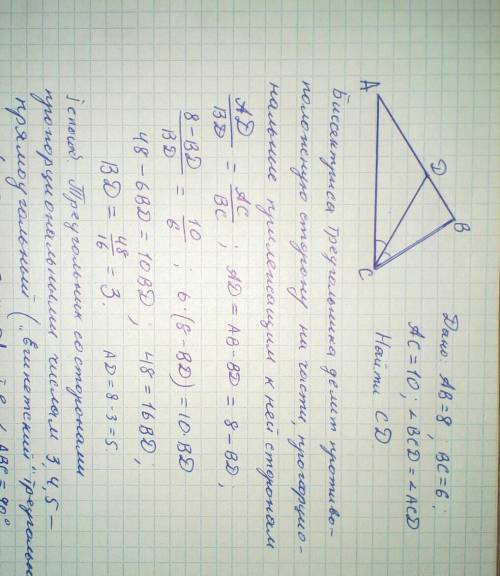 Дано: AB=8; BC=6;
AC=10; ∠BCD=∠ACD
Найти CD
A
D
B
C
Биссектриса треугольника делит противо-
положную сторону на части, пропорцио-
нальные прилежащим к ней сторонам
AD/BD = AC/BC; AD=AB-BD=8-BD;
8-BD/BD = 10/6; 6·(8-BD)=10·BD
48-6BD=10BD; 48=16BD;
BD=48/16=3. AD=8-3=5.
I способ. Треугольник со сторонами
пропорциональными числам 3,4,5 —
прямоугольный („египетский" треугольн
∠ABC=90°